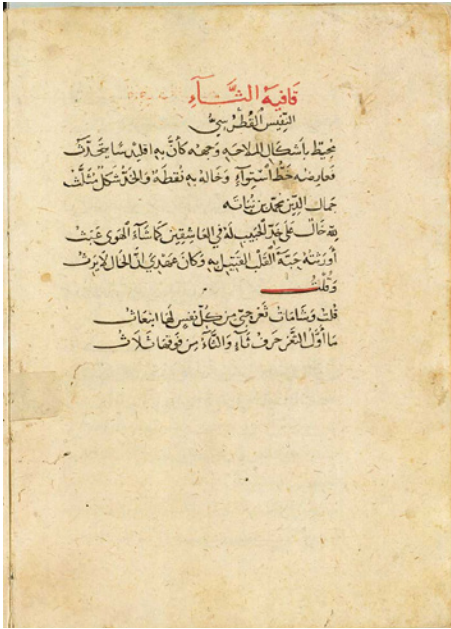 قافية الثاء
النفيس القطرسي
محيط بأشكال الملاحة وجهه كأن به اقليدسا يتحدث
فعارضه خط استواء وخاله به نقطة والخد شكل مثلث
جمال الدين محمد بن نباته
لله خال على خد الحبيب له في العاشقين كما شاء الهوى عبث
أورثته حبة القلب القتيل به وكان عهدي أن الخال لا يرث
وقلت
قلت وشامات ثغر حبي من كل نفس لها انبعاث
ما أول الثغر حرف ثاء والثاء من فوقها ثلاث